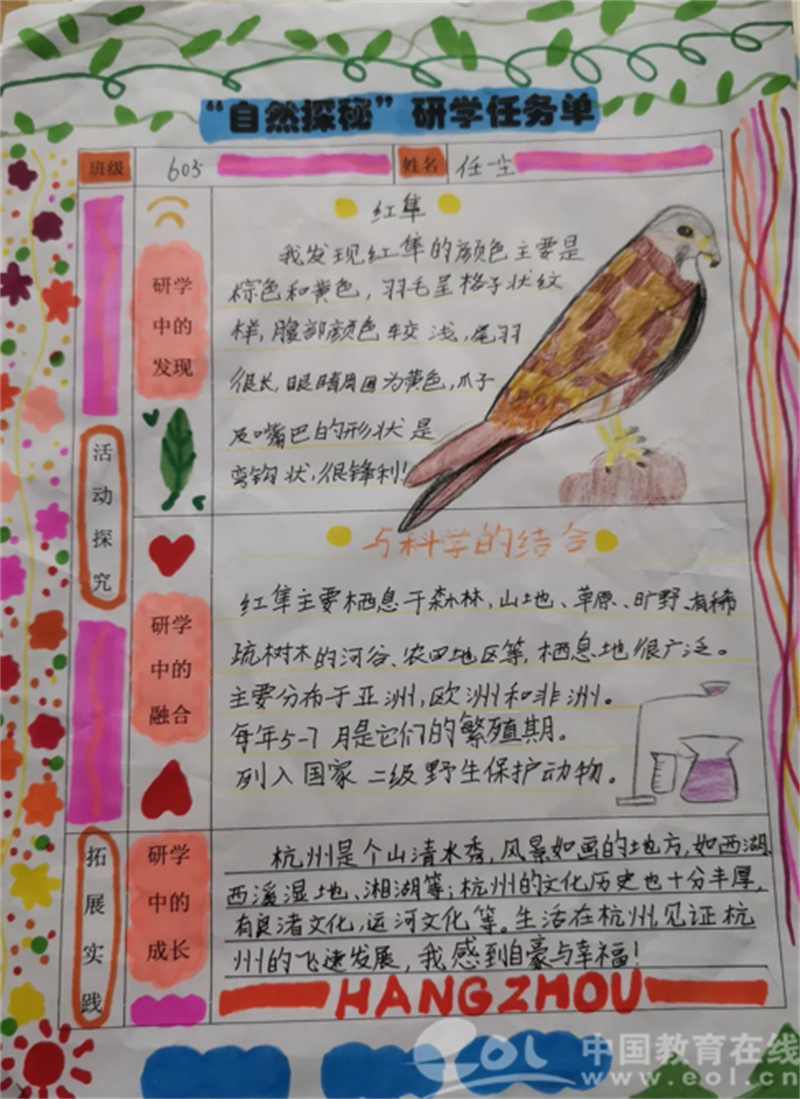 “自然探秘”研学任务单
班级 605 姓名 任一尘
活动探究
研学中的发现
红隼
我发现红隼的颜色主要是
棕色和黄色，羽毛呈格子状纹
样，腹部颜色较浅，尾羽
很长，眼睛周围为黄色，爪子
及嘴巴的形状是
弯钩状，很锋利！
研学中的融合
与科学的结合
红隼主要栖息于森林，山地、草原、旷野、有稀
疏树木的河谷、农田地区等，栖息地很广泛。
主要分布于亚洲，欧洲和非洲。
每年5-7月是它们的繁殖期。
列入国家二级野生保护动物。
拓展实践
研学中的成长
杭州是个山清水秀，风景如画的地方，如西湖、
西溪湿地、湘湖等；杭州的文化历史也十分丰厚，
有良渚文化，运河文化等。生活在杭州，见证杭
州的飞速发展，我感到自豪与幸福！
HANGZHOU
eol 中国教育在线
www.eol.cn